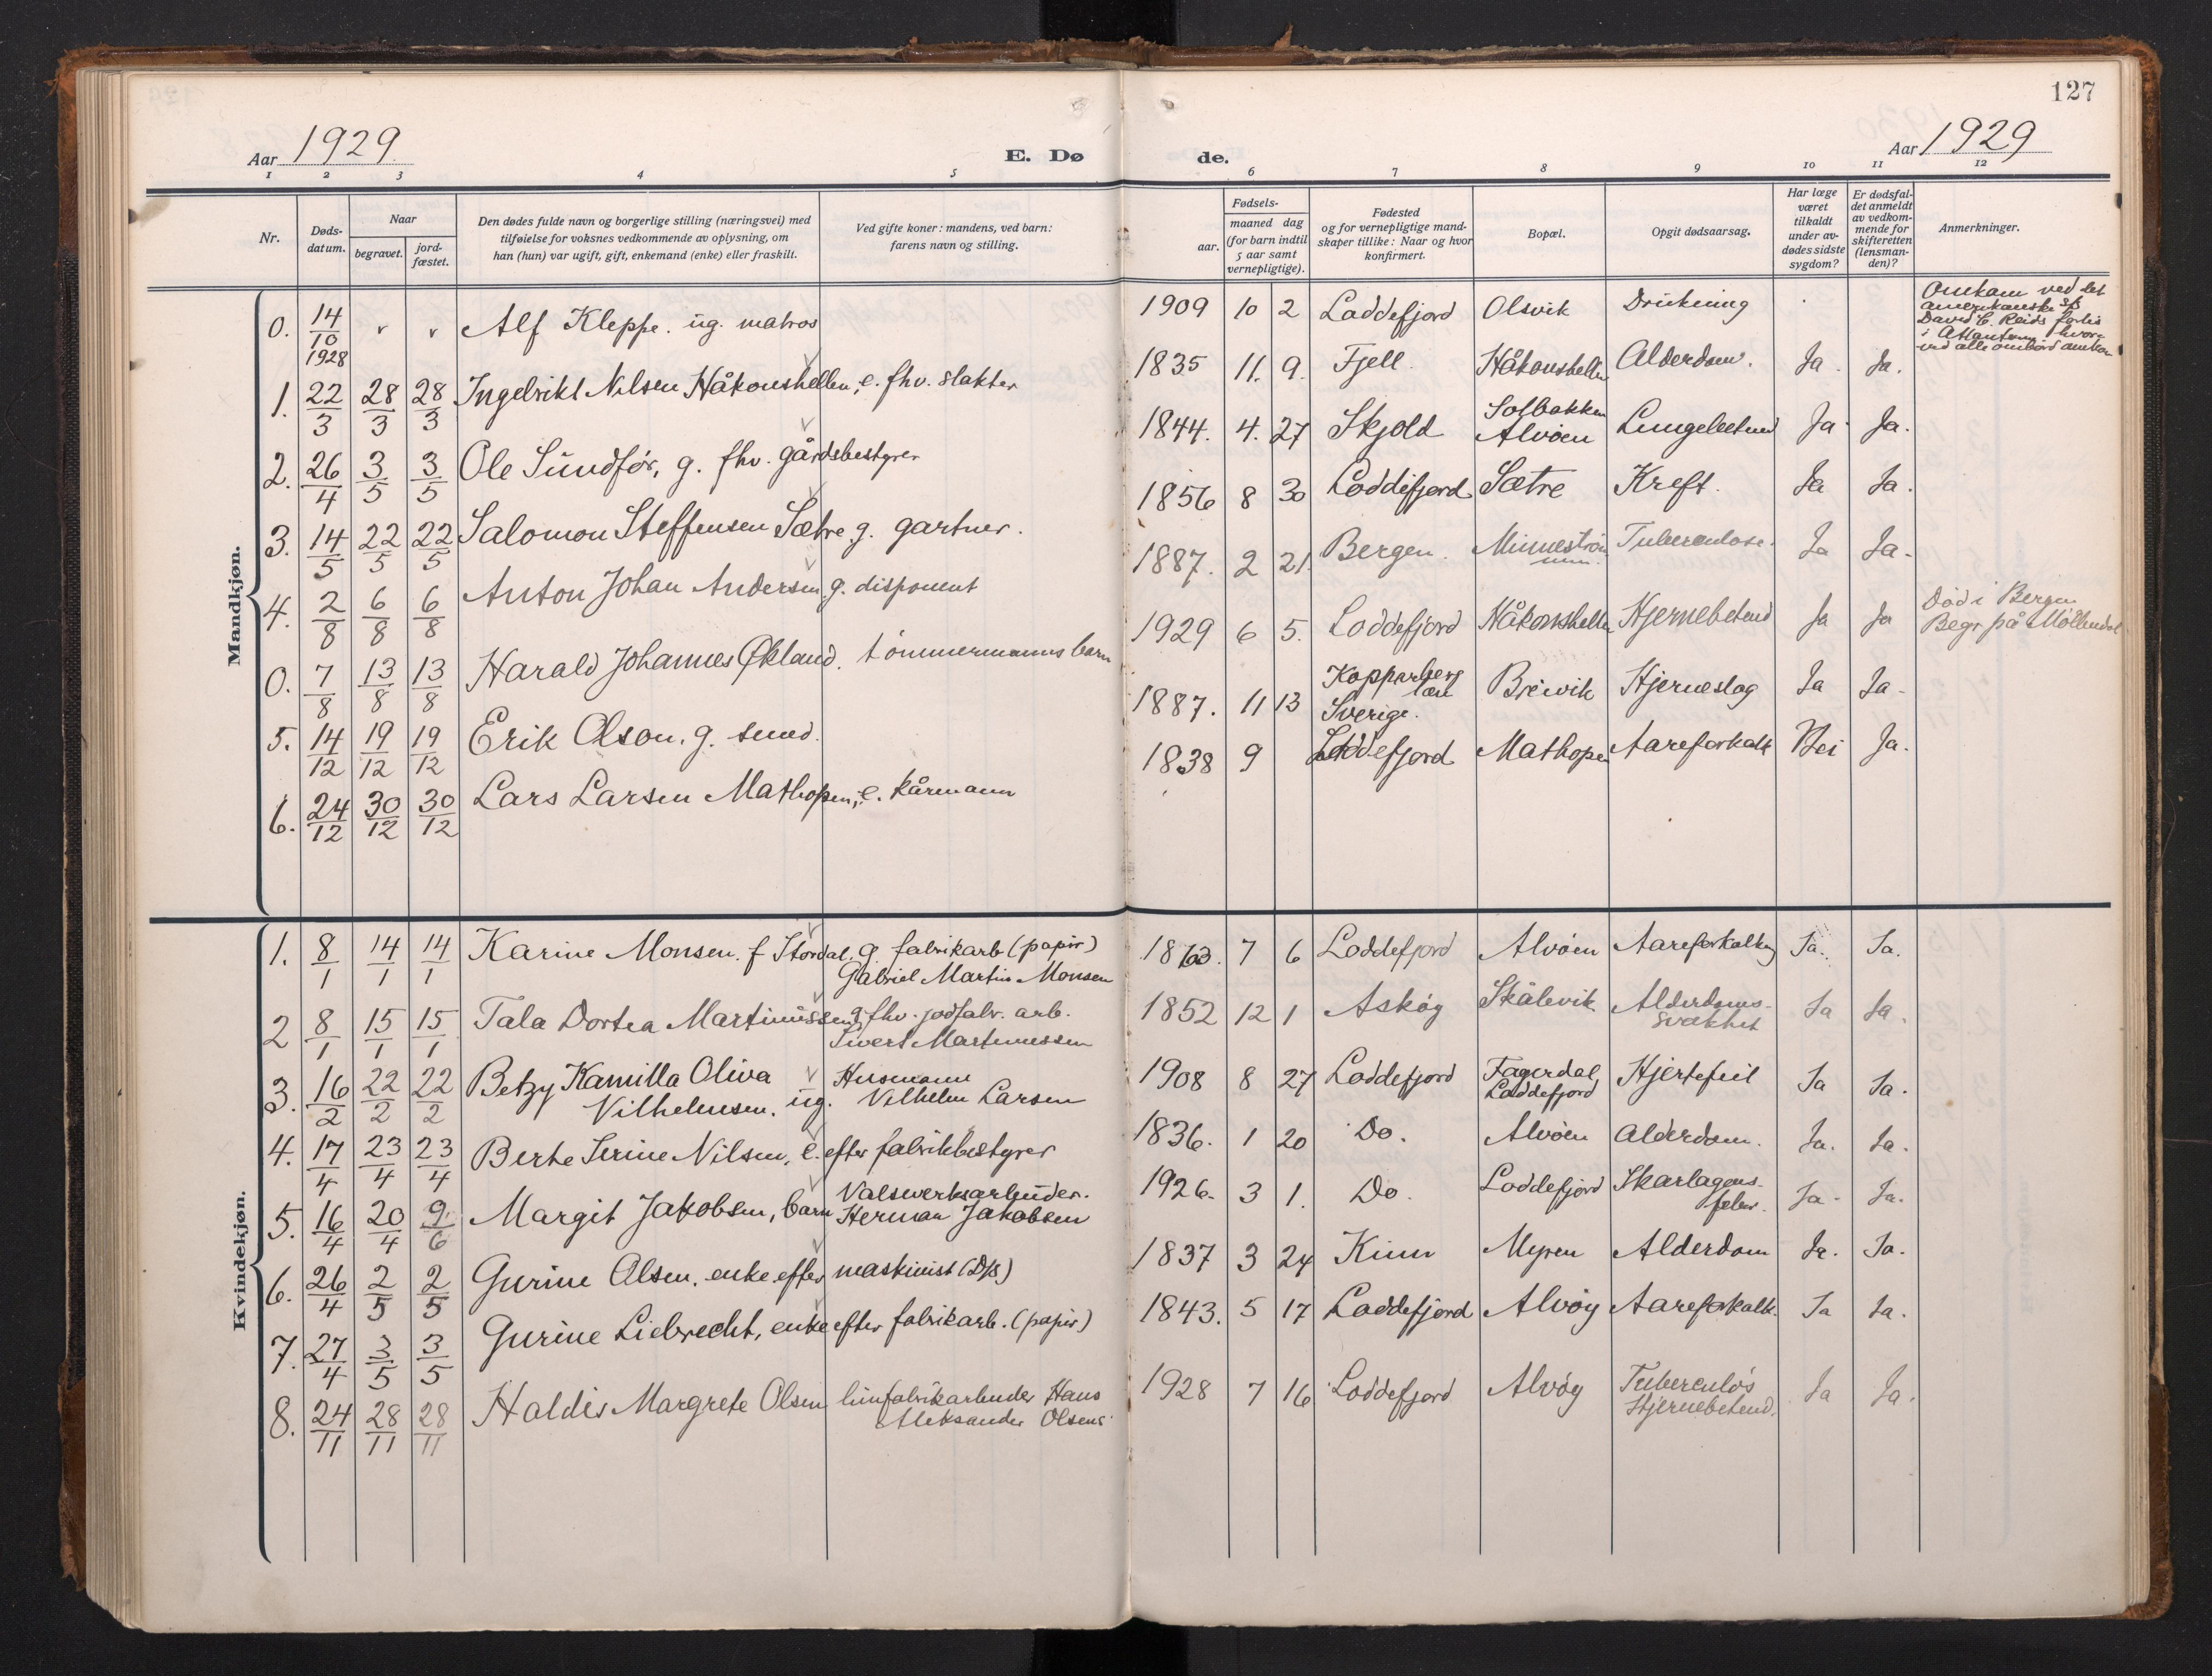 127
Aar 1929.
E. Dø
de.
Aar 1929
1 2 3 4 5 6 7 8 9 10 11 12
Nr.
Døds-
datum.
Naar
begravet.
jord-
fæstet.
Den dødes fulde navn og borgerlige stilling (næringsvei) med
tilføielse for voksnes vedkommende av oplysning, om
han (hun) var ugift, gift, enkemand (enke) eller fraskilt.
Ved gifte koner: mandens, ved barn:
farens navn og stilling.
Fødsels-
aar.
maaned dag
(for barn indtil
5 aar samt
vernepligtige).
Fødested
og for vernepligtige mand-
skaper tillike: Naar og hvor
konfirmert.
Bopæl.
Opgit dødsaarsag.
Har læge
været
tilkaldt
under av-
dødes sidste
sygdom?
Er dødsfal-
det anmeldt
av vedkom-
mende for
skifteretten
(lensman-
den)?
Anmerkninger.
Mandkjøn.
0. 14/10 1928 " " Alf Kleppe. ug. matros 1909 10 2 Loddefjord Olsvik Drukning
Omkom ved det
amerikanske sk
David C. Reids forlis
i Atlanteren hvor-
ved alle ombord omkom
1. 22/3 28/3 28/3 Ingebrikt Nilsen Håkonshellen, e. fhv. slakter 1835 11. 9. Fjell. Håkonshellen Alderdom. Ja. Ja.
2. 26/4 3/5 3/5 Ole Sundfør, g. fhv. gårdsbestyrer 1844. 4. 27 Skjold Solbakken Alvøen Lungebetend Ja. Ja.
3. 14/5 22/5 22/5 Salomon Steffensen Sætre g. gartner. 1856 8 30 Loddefjord Sætre Kreft. Ja Ja.
4. 2/8 6/8 6/8 Anton Johan Andersen g. disponent 1887. 2 21. Bergen. Tuberculose. Ja Ja.
0. 7/8 13/8 13/8 Harald Johannes Økland. tømmermanns barn 1929 6 5. Loddefjord Håkonshellen Hjernebetend Ja Ja
Død i Bergen
Begr på Møllendal
5. 14/12 19/12 19/12 Erik Olson. g. smed. 1887. 11 13 Kopparberg län Sverige. Breivik Hjerneslag Ja Ja.
6. 24/12 30/12 30/12 Lars Larsen Mathopen, e. kårmann 1838 9 Loddefjord Mathopen Aareforkalk Nei Ja.
Kvindekjøn.
1. 8/1 14/1 14/1 Karine Monsen. f Stordal. g. fabrikarb (papir) 1863. 7 6 Loddefjord Alvøen Aareforkalkng Ja. Ja.
Gabriel Martin Monsen
2 8/1 15/1 15/1 Tala Dortea Martinussen g. fhv. jodfabr. arb. 1852 12 1 Askøy Skålevik Alderdoms- Ja Ja.
Sivert Martinussen svakhet
3. 16/2 22/2 22/2 Betzy Kamilla Oliva Husmann 1908 8 27 Loddefjord Fagerdal Hjertefeil Ja Ja.
Vilhelmsen. ug. Vilhelm Larsen Loddefjord
4. 17/4 23/4 23/4 Berte Serine Nilsen, e. efter fabrikbestyrer 1836. 1 20 Do. Alvøen Alderdom. Ja. Ja.
5. 16/4 20/4 9/6 Margit Jakobsen, barn Valsverksarbeider. 1926. 3 1. Do. Loddefjord Skarlagens- Ja. Ja.
Herman Jakobsen feber.
6. 26/4 2/5 2/5 Gurine Olsen. enke efter maskinist (D/S) 1837 3 24 Kinn Myren Alderdom Ja. Ja.
7. 27/4 3/5 3/5 Gurine Liebrecht, enke efter fabrikarb. (papir) 1843. 5 17 Loddefjord Alvøy Aareforkalk. Ja Ja.
8. 24/11 28/11 28/11 Haldis Margrete Olsen limfabrikarbeider Hans 1928 7 16 Loddefjord Alvøy Tuberculøs Ja Ja.
Aleksander Olsens Hjernebetend.